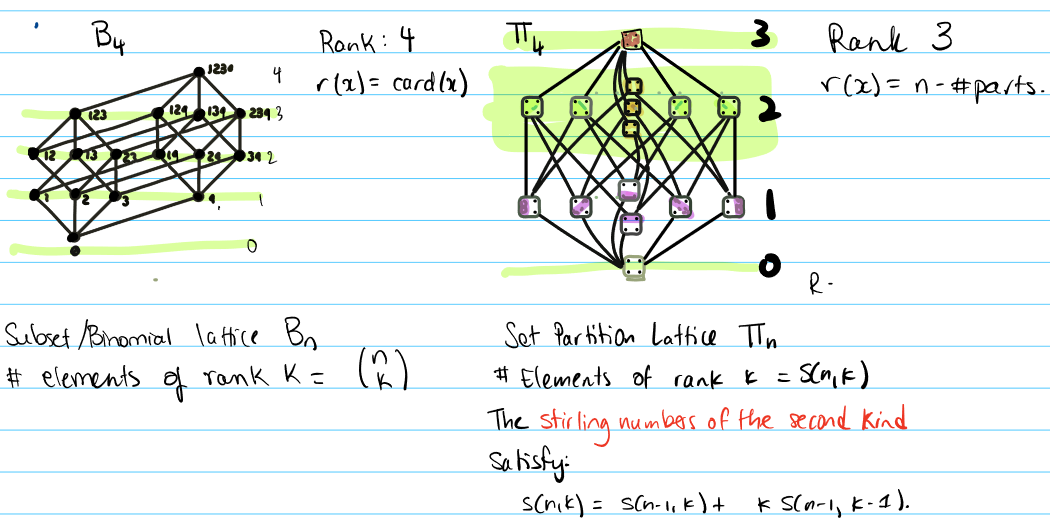 B₄
Rank: 4
r(x) = card(x)
1234
4
123
124
134
234
3
12
13
23
14
24
34
2
1
2
3
4
1
0
π₄
3
2
1
0
Rank 3
r(x) = n - #parts.
R-
Subset/Binomial lattice Bₙ
# elements of rank K = (n K)
Set Partition Lattice πₙ
# Elements of rank k = S(n,k)
The stirling numbers of the second kind
Satisfy:
S(n,k) = S(n-1, k) + k S(n-1, k-1).